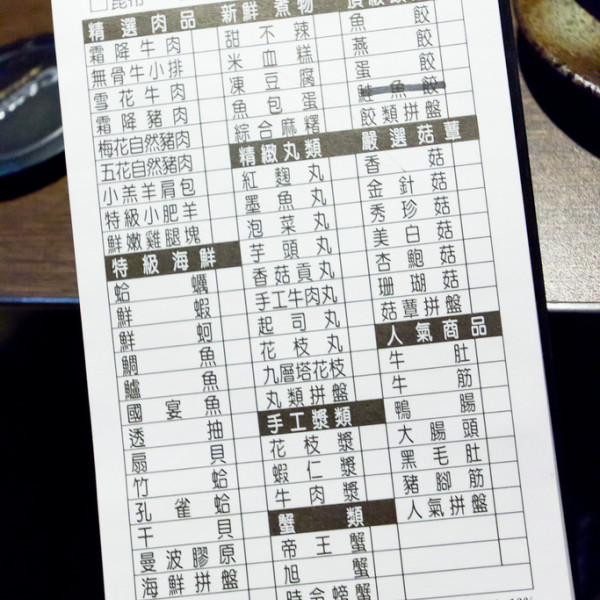 精選肉品
霜降牛肉
無骨牛小排
雪花牛肉
霜降豬肉
梅花自然豬肉
五花自然豬肉
小羔羊肩包
特級小肥羊
鮮嫩雞腿塊
特級海鮮
蛤蠣
鮮蝦
鮮蚵
鯛魚
鱸魚
國宴魚
透抽
扇貝
竹蛤
孔雀蛤
干貝
曼波膠原
海鮮拼盤
新鮮煮物
甜不辣
米血糕
凍豆腐
魚包蛋
綜合麻糬
精緻丸類
紅麴丸
墨魚丸
泡菜丸
芋頭丸
香菇貢丸
手工牛肉丸
起司丸
花枝丸
九層塔花枝
丸類拼盤
手工漿類
花枝漿
蝦仁漿
牛肉漿
蟹類
帝王蟹
旭蟹
時令螃蟹
魚餃
燕餃
蛋餃
鮭魚餃
餃類拼盤
嚴選菇蕈
香菇
金針菇
秀珍菇
美白菇
杏鮑菇
珊瑚菇
菇蕈拼盤
人氣商品
牛肚
牛筋
鴨腸
大腸頭
黑毛肚
豬腳筋
人氣拼盤